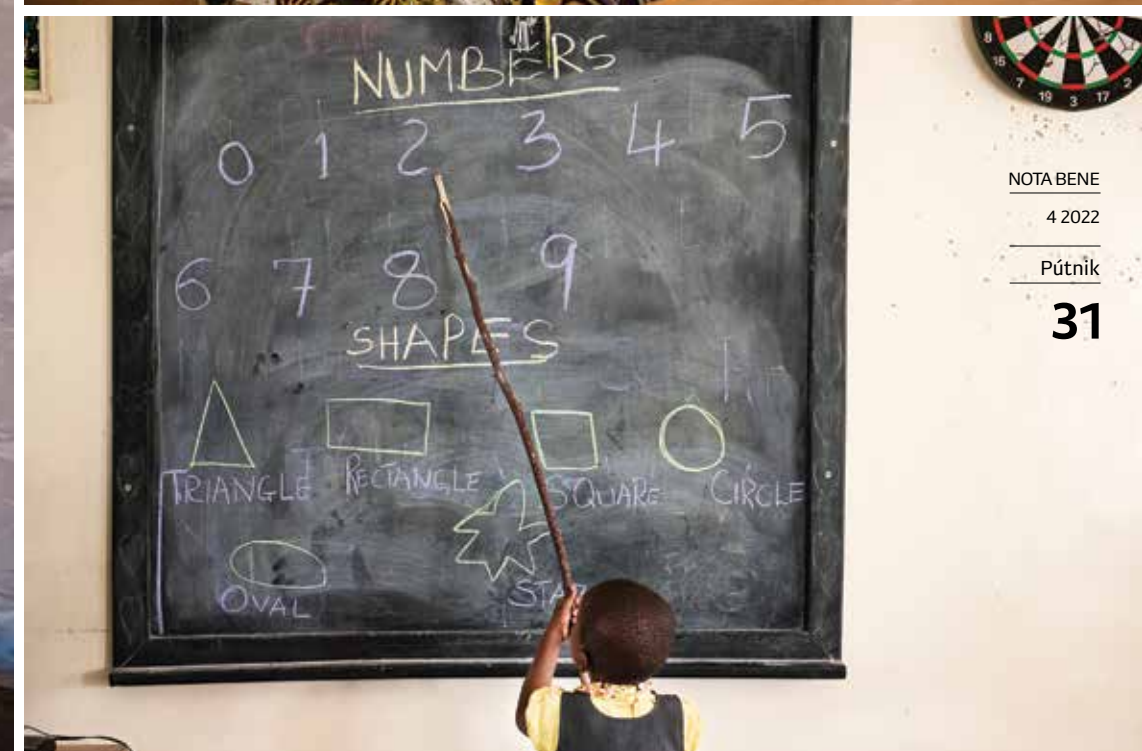 NUMBERS
0 1 2 3 4 5
6 7 8 9
SHAPES
TRIANGLE RECTANGLE SQUARE CIRCLE
OVAL
8
16
7
19
3
17
2
NOTA BENE
4 2022
Pútnik
31